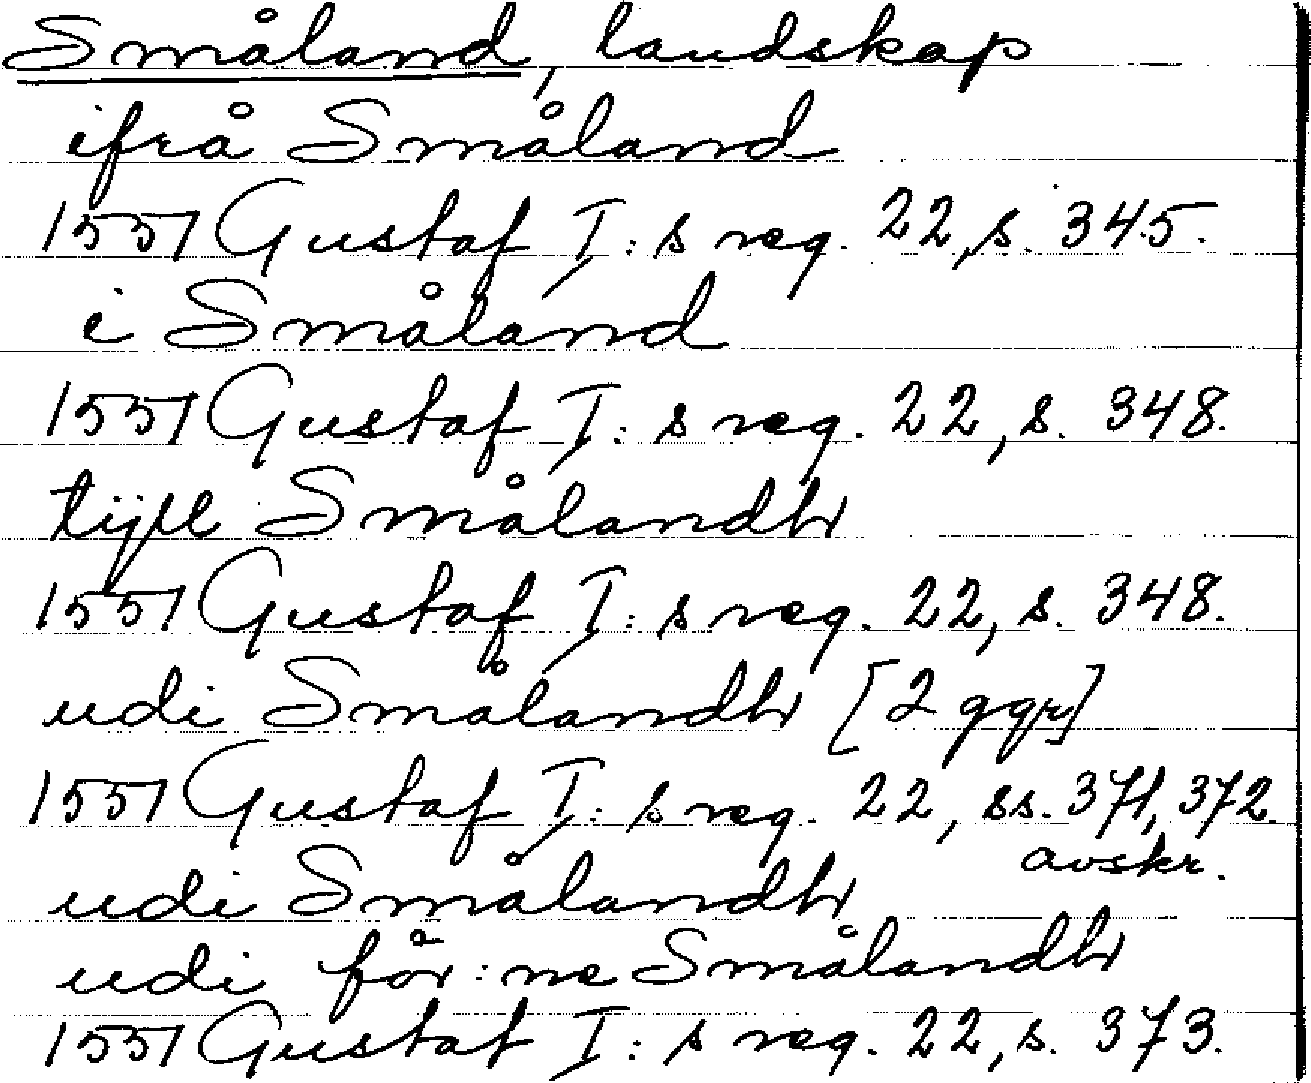 Småland, landskap
ifrå Småland
1551 Gustaf I:s reg. 22, s. 345.
i Småland
1551 Gustaf I:s reg. 22, s. 348.
tijll Smålandh
1551 Gustaf I:s reg. 22, s. 348.
udi Smålandh [2 ggr]
1551 Gustaf I:s reg. 22, ss. 371, 372.
avskr.
udi Smålandh
udi får:ne Smålandh
1551 Gustaf I:s reg. 22, s. 373.